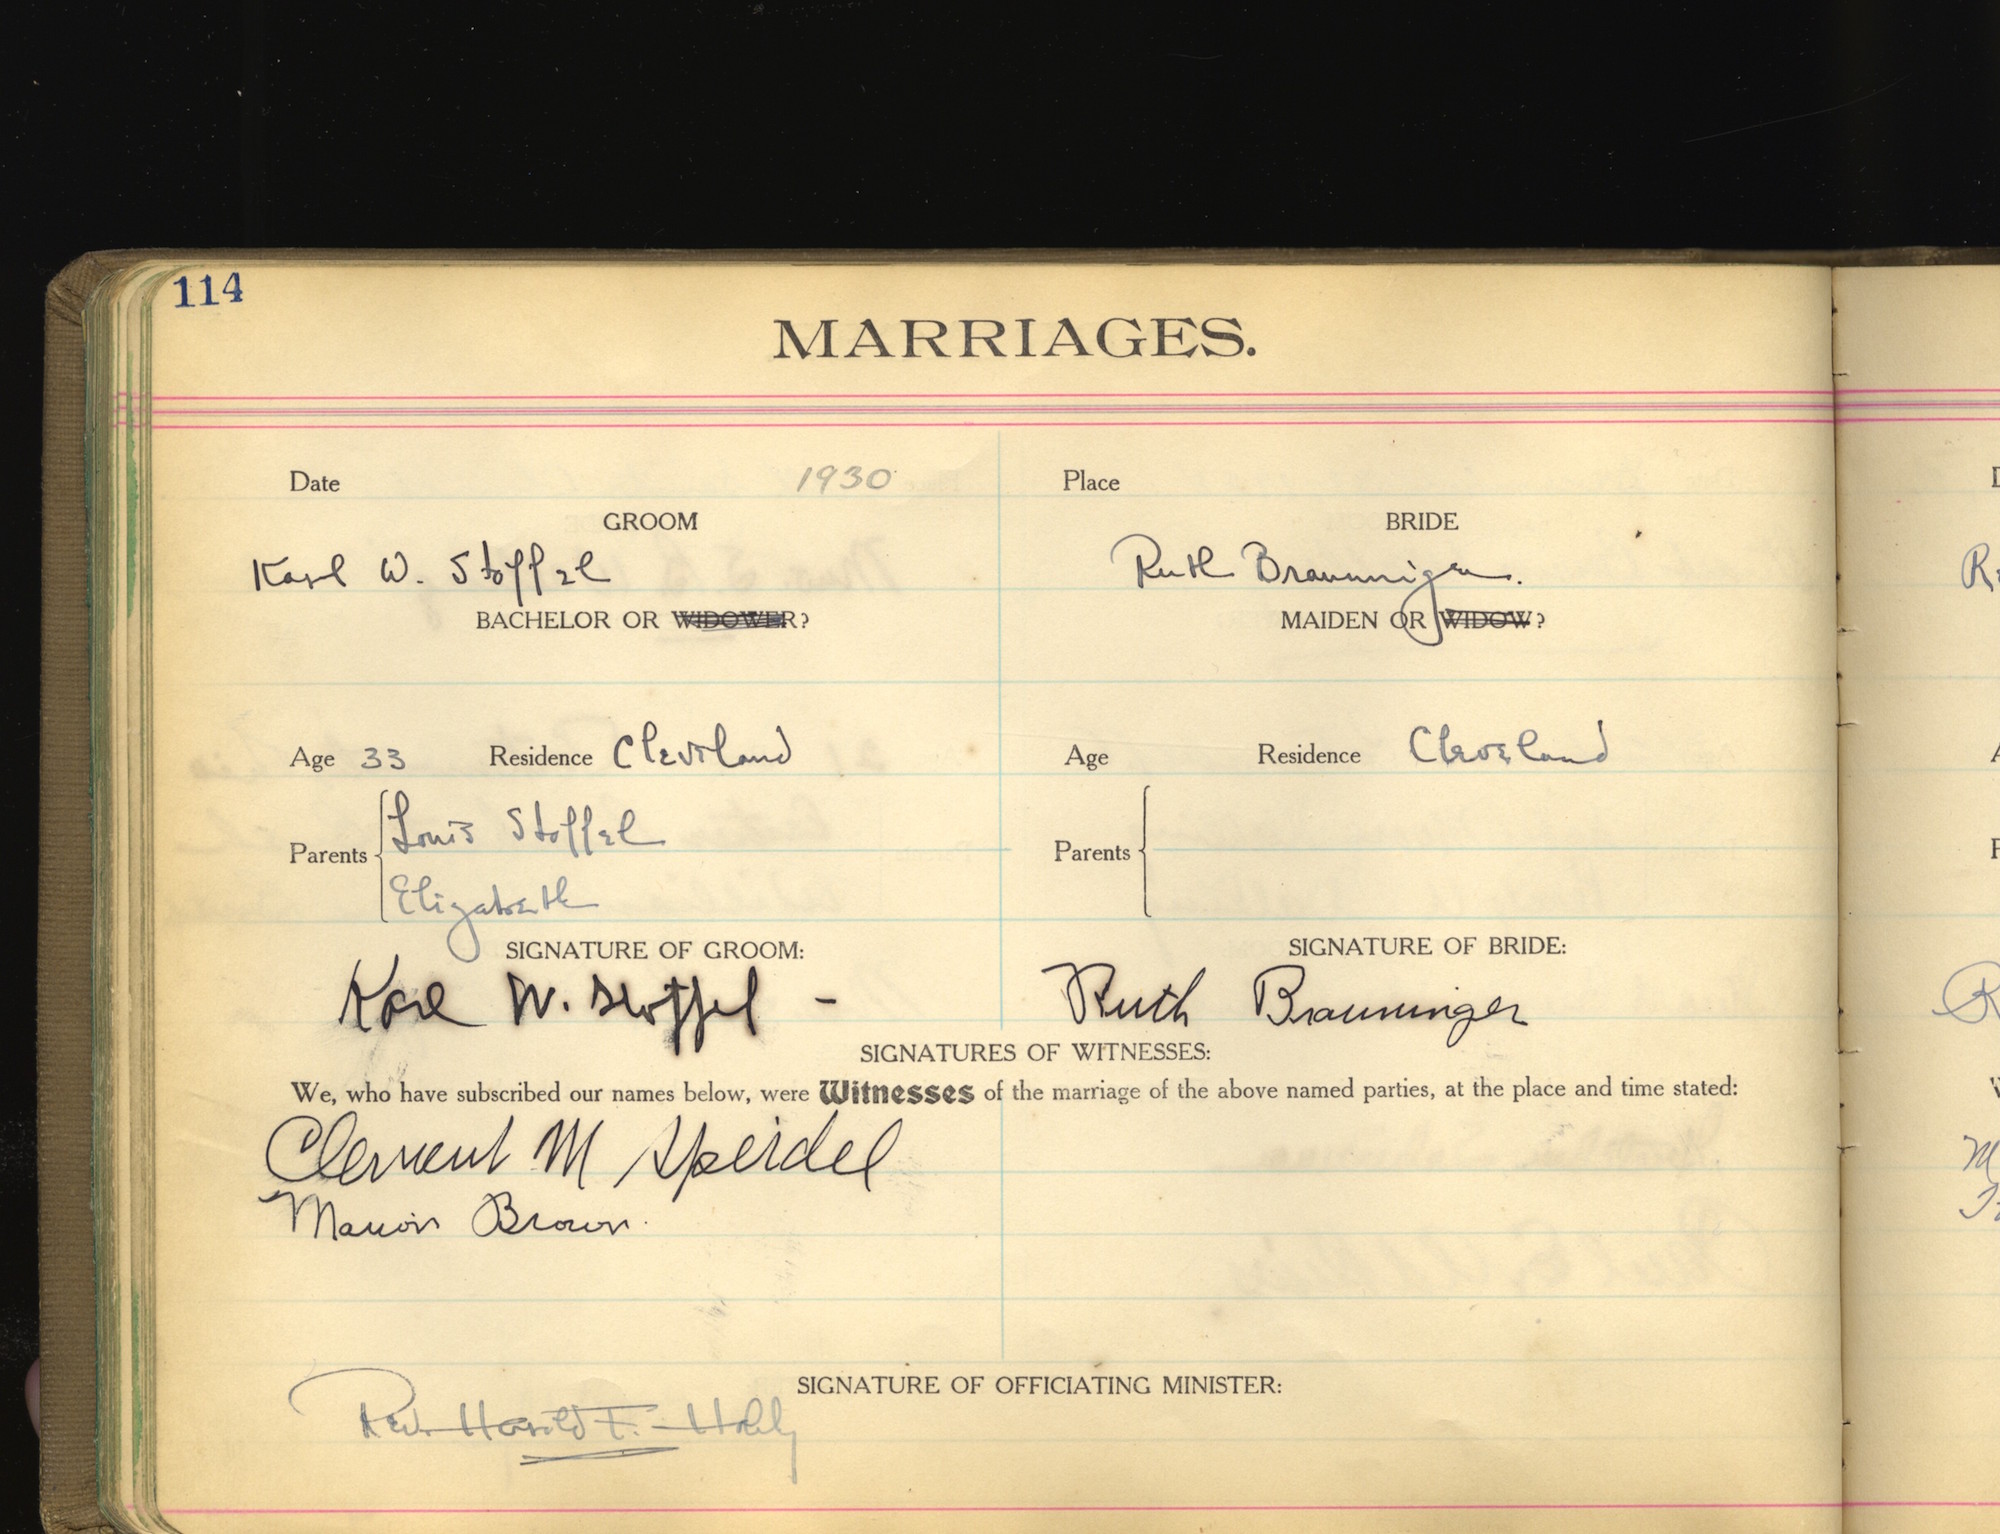 114
MARRIAGES.
Date 1930 Place
GROOM BRIDE
Karl W. Stoffel Ruth
BACHELOR OR WIDOWER? MAIDEN OR WIDOW?
Age 33 Residence Cleveland Age Residence Cleveland
Parents Louis Stoffel Parents
Elizabeth
SIGNATURE OF GROOM: SIGNATURE OF BRIDE:
Karl W. Stoffel - Ruth Brauninger
SIGNATURES OF WITNESSES:
We, who have subscribed our names below, were Witnesses of the marriage of the above named parties, at the place and time stated:
Clement M Speidel
Marion Brown.
SIGNATURE OF OFFICIATING MINISTER:
Rev. Harold F.